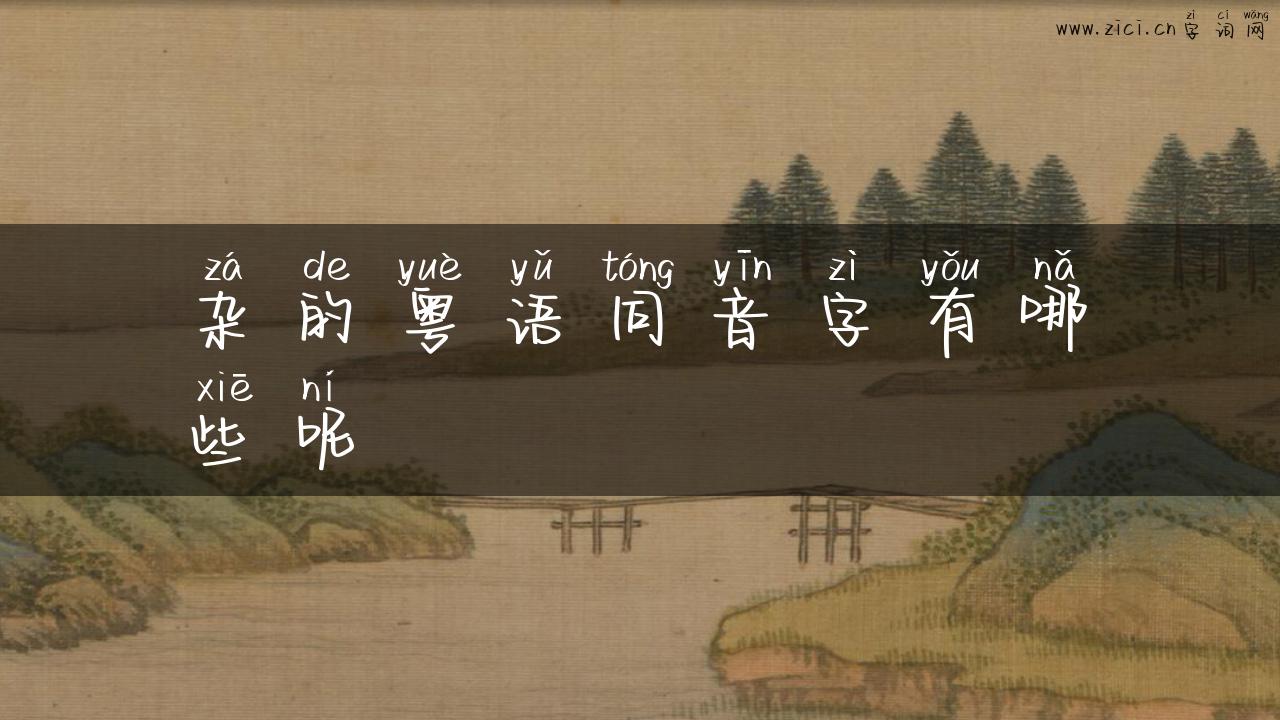 zì cí wǎng
www.zici.cn 字词网
zá de yuè yǔ tóng yīn zì yǒu nǎ
杂的粤语同音字有哪
xiē ní
些呢